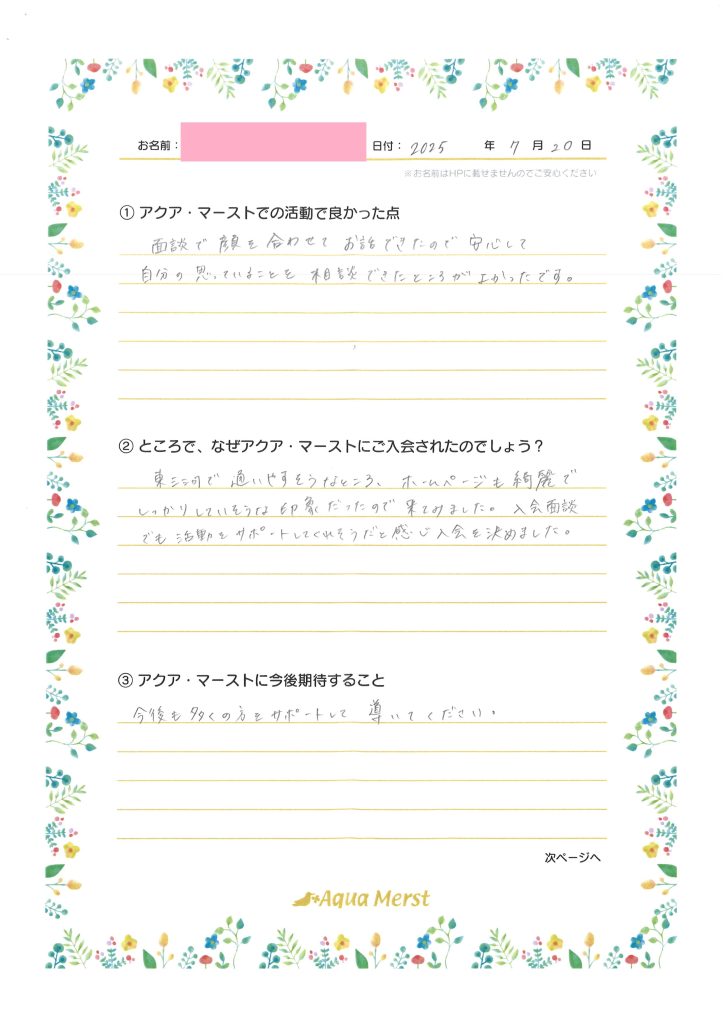 お名前： 日付： 2025 年 7 月 20 日
※お名前はHPに載せませんのでご安心ください
① アクア・マーストでの活動で良かった点
面談で顔を合わせてお話できたので安心して
自分の思っていることを相談できたところがよかったです。
② ところで、なぜアクア・マーストにご入会されたのでしょう？
東三河で通いやすそうなところ、ホームページも綺麗で
しっかりしていそうな印象だったので来てみました。入会面談
でも活動をサポートしてくれそうだと感じ入会を決めました。
③ アクア・マーストに今後期待すること
今後も多くの方をサポートして導いてください。
次ページへ
Aqua Merst